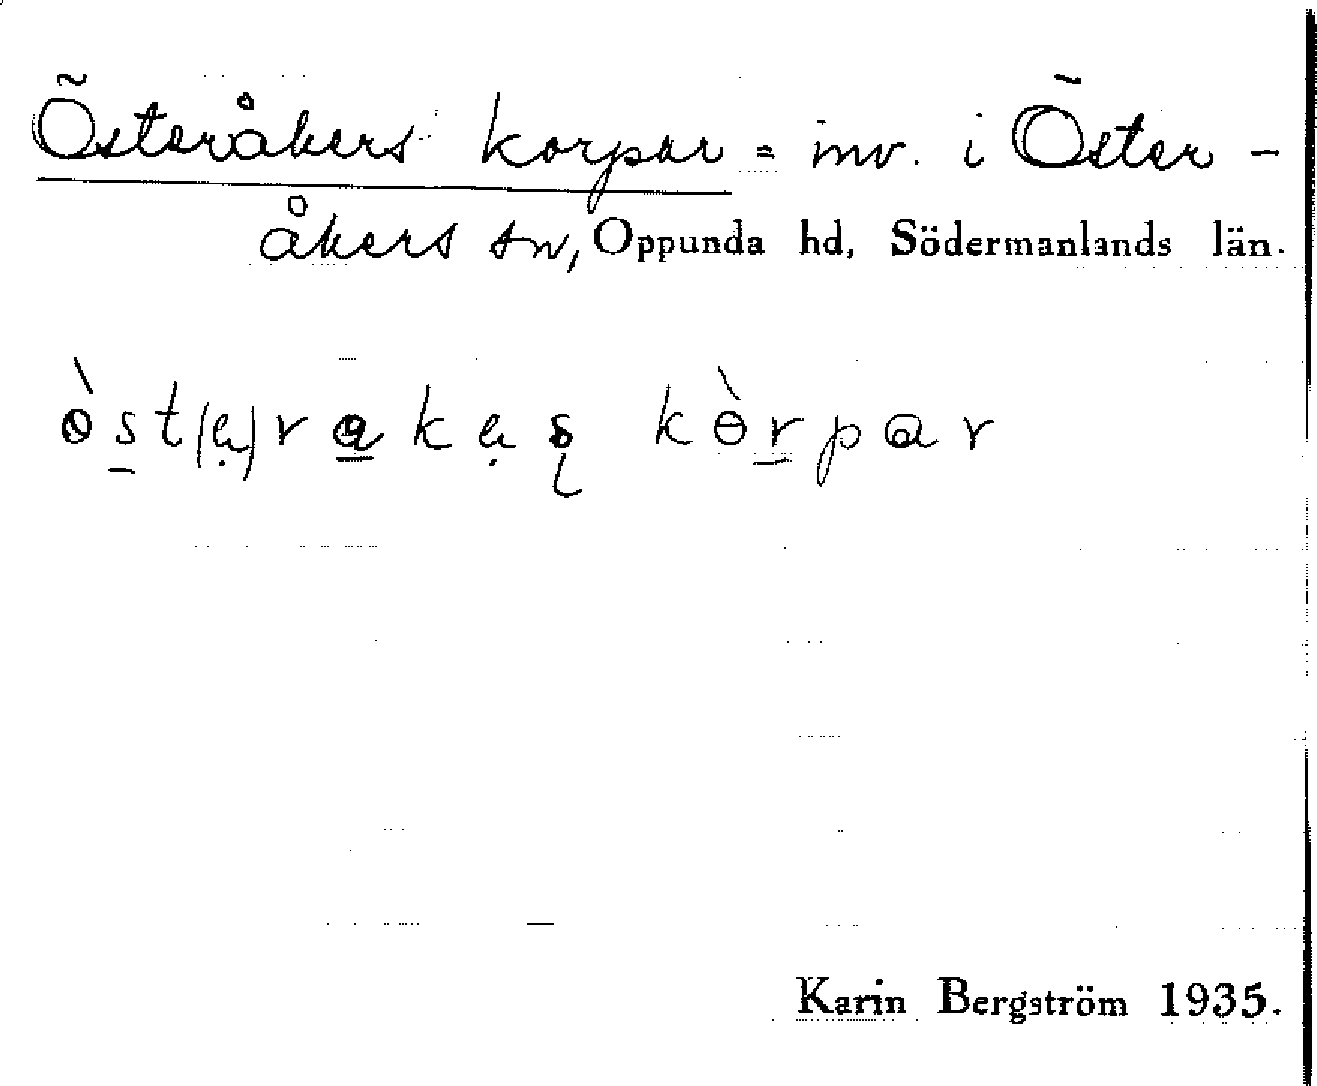 Österåkers korpar = inv. i Öster-
åkers sn, Oppunda hd, Södermanlands län.
ò̀st(ạ)rakạş kɵ̀rpar
Karin Bergström 1935.